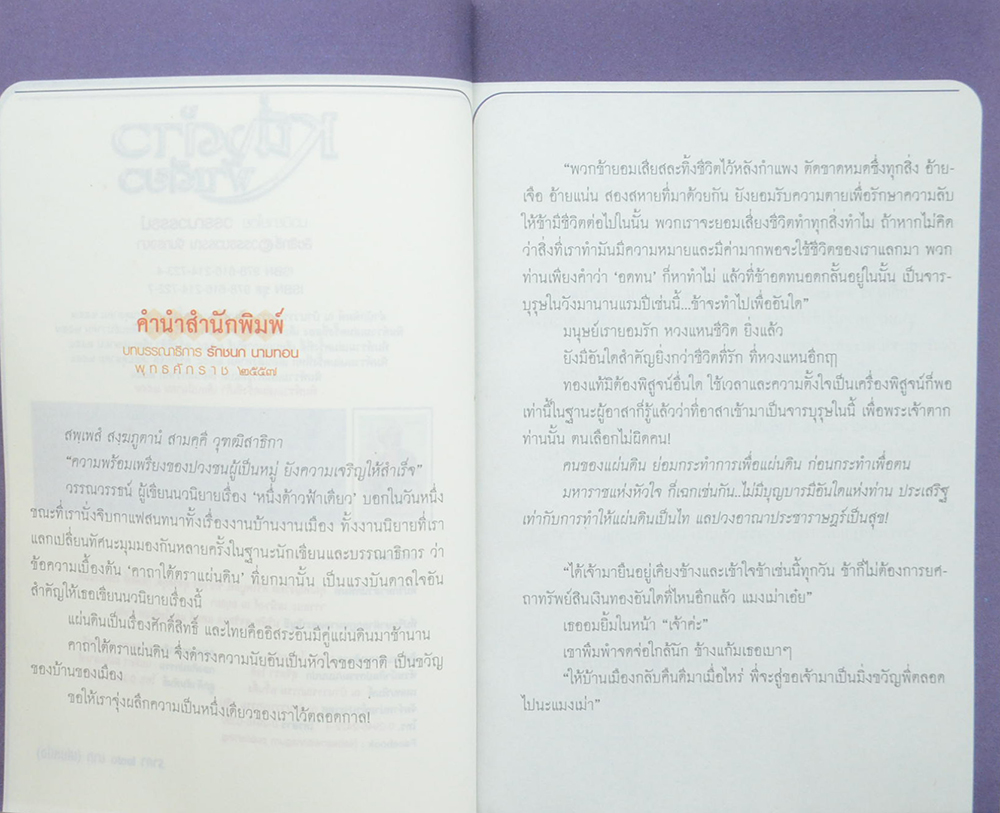 คำนำสำนักพิมพ์
บทบรรณาธิการ รักชนก นามทอน
พุทธศักราช ๒๕๕๗
สพฺเพสํ สงฺฆภูตานํ สามคฺคี วุฑฒิสาธิกา
“ความพร้อมเพรียงของปวงชนผู้เป็นหมู่ ยังความเจริญให้สำเร็จ”
วรรณวรรธน์ ผู้เขียนนวนิยายเรื่อง ‘หนึ่งด้าวฟ้าเดียว’ บอกในวันหนึ่ง
ขณะที่เรานั่งจิบกาแฟสนทนาทั้งเรื่องงานบ้านงานเมือง ทั้งงานนิยายที่เรา
แลกเปลี่ยนทัศนะมุมมองกันหลายครั้งในฐานะนักเขียนและบรรณาธิการ ว่า
ข้อความเบื้องต้น ‘คาถาใต้ตราแผ่นดิน’ ที่ยกมานั้น เป็นแรงบันดาลใจอัน
สำคัญให้เธอเขียนนวนิยายเรื่องนี้
แผ่นดินเป็นเรื่องศักดิ์สิทธิ์ และไทยคืออิสระอันมีคู่แผ่นดินมาช้านาน
คาถาใต้ตราแผ่นดิน จึงดำรงความนัยอันเป็นหัวใจของชาติ เป็นขวัญ
ของบ้านของเมือง
ขอให้เราจุ่งผลึกความเป็นหนึ่งเดียวของเราไว้ตลอดกาล!
“พวกข้ายอมเสียสละทิ้งชีวิตไว้หลังกำแพง ตัดขาดหมดซึ่งทุกสิ่ง อ้าย-
เจือ อ้ายแน่น สองสหายที่มาด้วยกัน ยังยอมรับความตายเพื่อรักษาความลับ
ให้ข้ามีชีวิตต่อไปในนั้น พวกเราจะยอมเสี่ยงชีวิตทำทุกสิ่งทำไม ถ้าหากไม่คิด
ว่าสิ่งที่เราทำมันมีความหมายและมีค่ามากพอจะใช้ชีวิตของเราแลกมา พวก
ท่านเพียงคำว่า ‘อดทน’ ก็หาทำไม่ แล้วที่ข้าอดทนอดกลั้นอยู่ในนั้น เป็นจาร-
บุรุษในวังมานานแรมปีเช่นนี้...ข้าจะทำไปเพื่ออันใด”
มนุษย์เรายอมรัก หวงแหนชีวิต ยิ่งแล้ว
ยังมีอันใดสำคัญยิ่งกว่าชีวิตที่รัก ที่หวงแหนอีกฤๅ
ทองแท้มิต้องพิสูจน์อื่นใด ใช้เวลาและความตั้งใจเป็นเครื่องพิสูจน์ก็พอ
เท่านี้ในฐานะผู้อาสาก็รู้แล้วว่าที่อาสาเข้ามาเป็นจารบุรุษในนี้ เพื่อพระเจ้าตาก
ท่านนั้น ตนเลือกไม่ผิดคน!
คนของแผ่นดิน ย่อมกระทำการเพื่อแผ่นดิน ก่อนกระทำเพื่อตน
มหาราชแห่งหัวใจ ก็เฉกเช่นกัน..ไม่มีบุญบารมีอันใดแห่งท่าน ประเสริฐ
เท่ากับการทำให้แผ่นดินเป็นไท แลปวงอาณาประชาราษฎร์เป็นสุข!
“ได้เจ้ามายืนอยู่เคียงข้างและเข้าใจข้าเช่นนี้ทุกวัน ข้าก็ไม่ต้องการยศ-
ถาทรัพย์สินเงินทองอันใดที่ไหนอีกแล้ว แมงเม่าเอ๋ย”
เธออมยิ้มในหน้า “เจ้าค่ะ”
เขาพึมพำจดจ่อใกล้นัก ข้างแก้มเธอเบาๆ
“ให้บ้านเมืองกลับคืนดีมาเมื่อไหร่ พี่จะสู่ขอเจ้ามาเป็นมิ่งขวัญพี่ตลอด
ไปนะแมงเม่า”